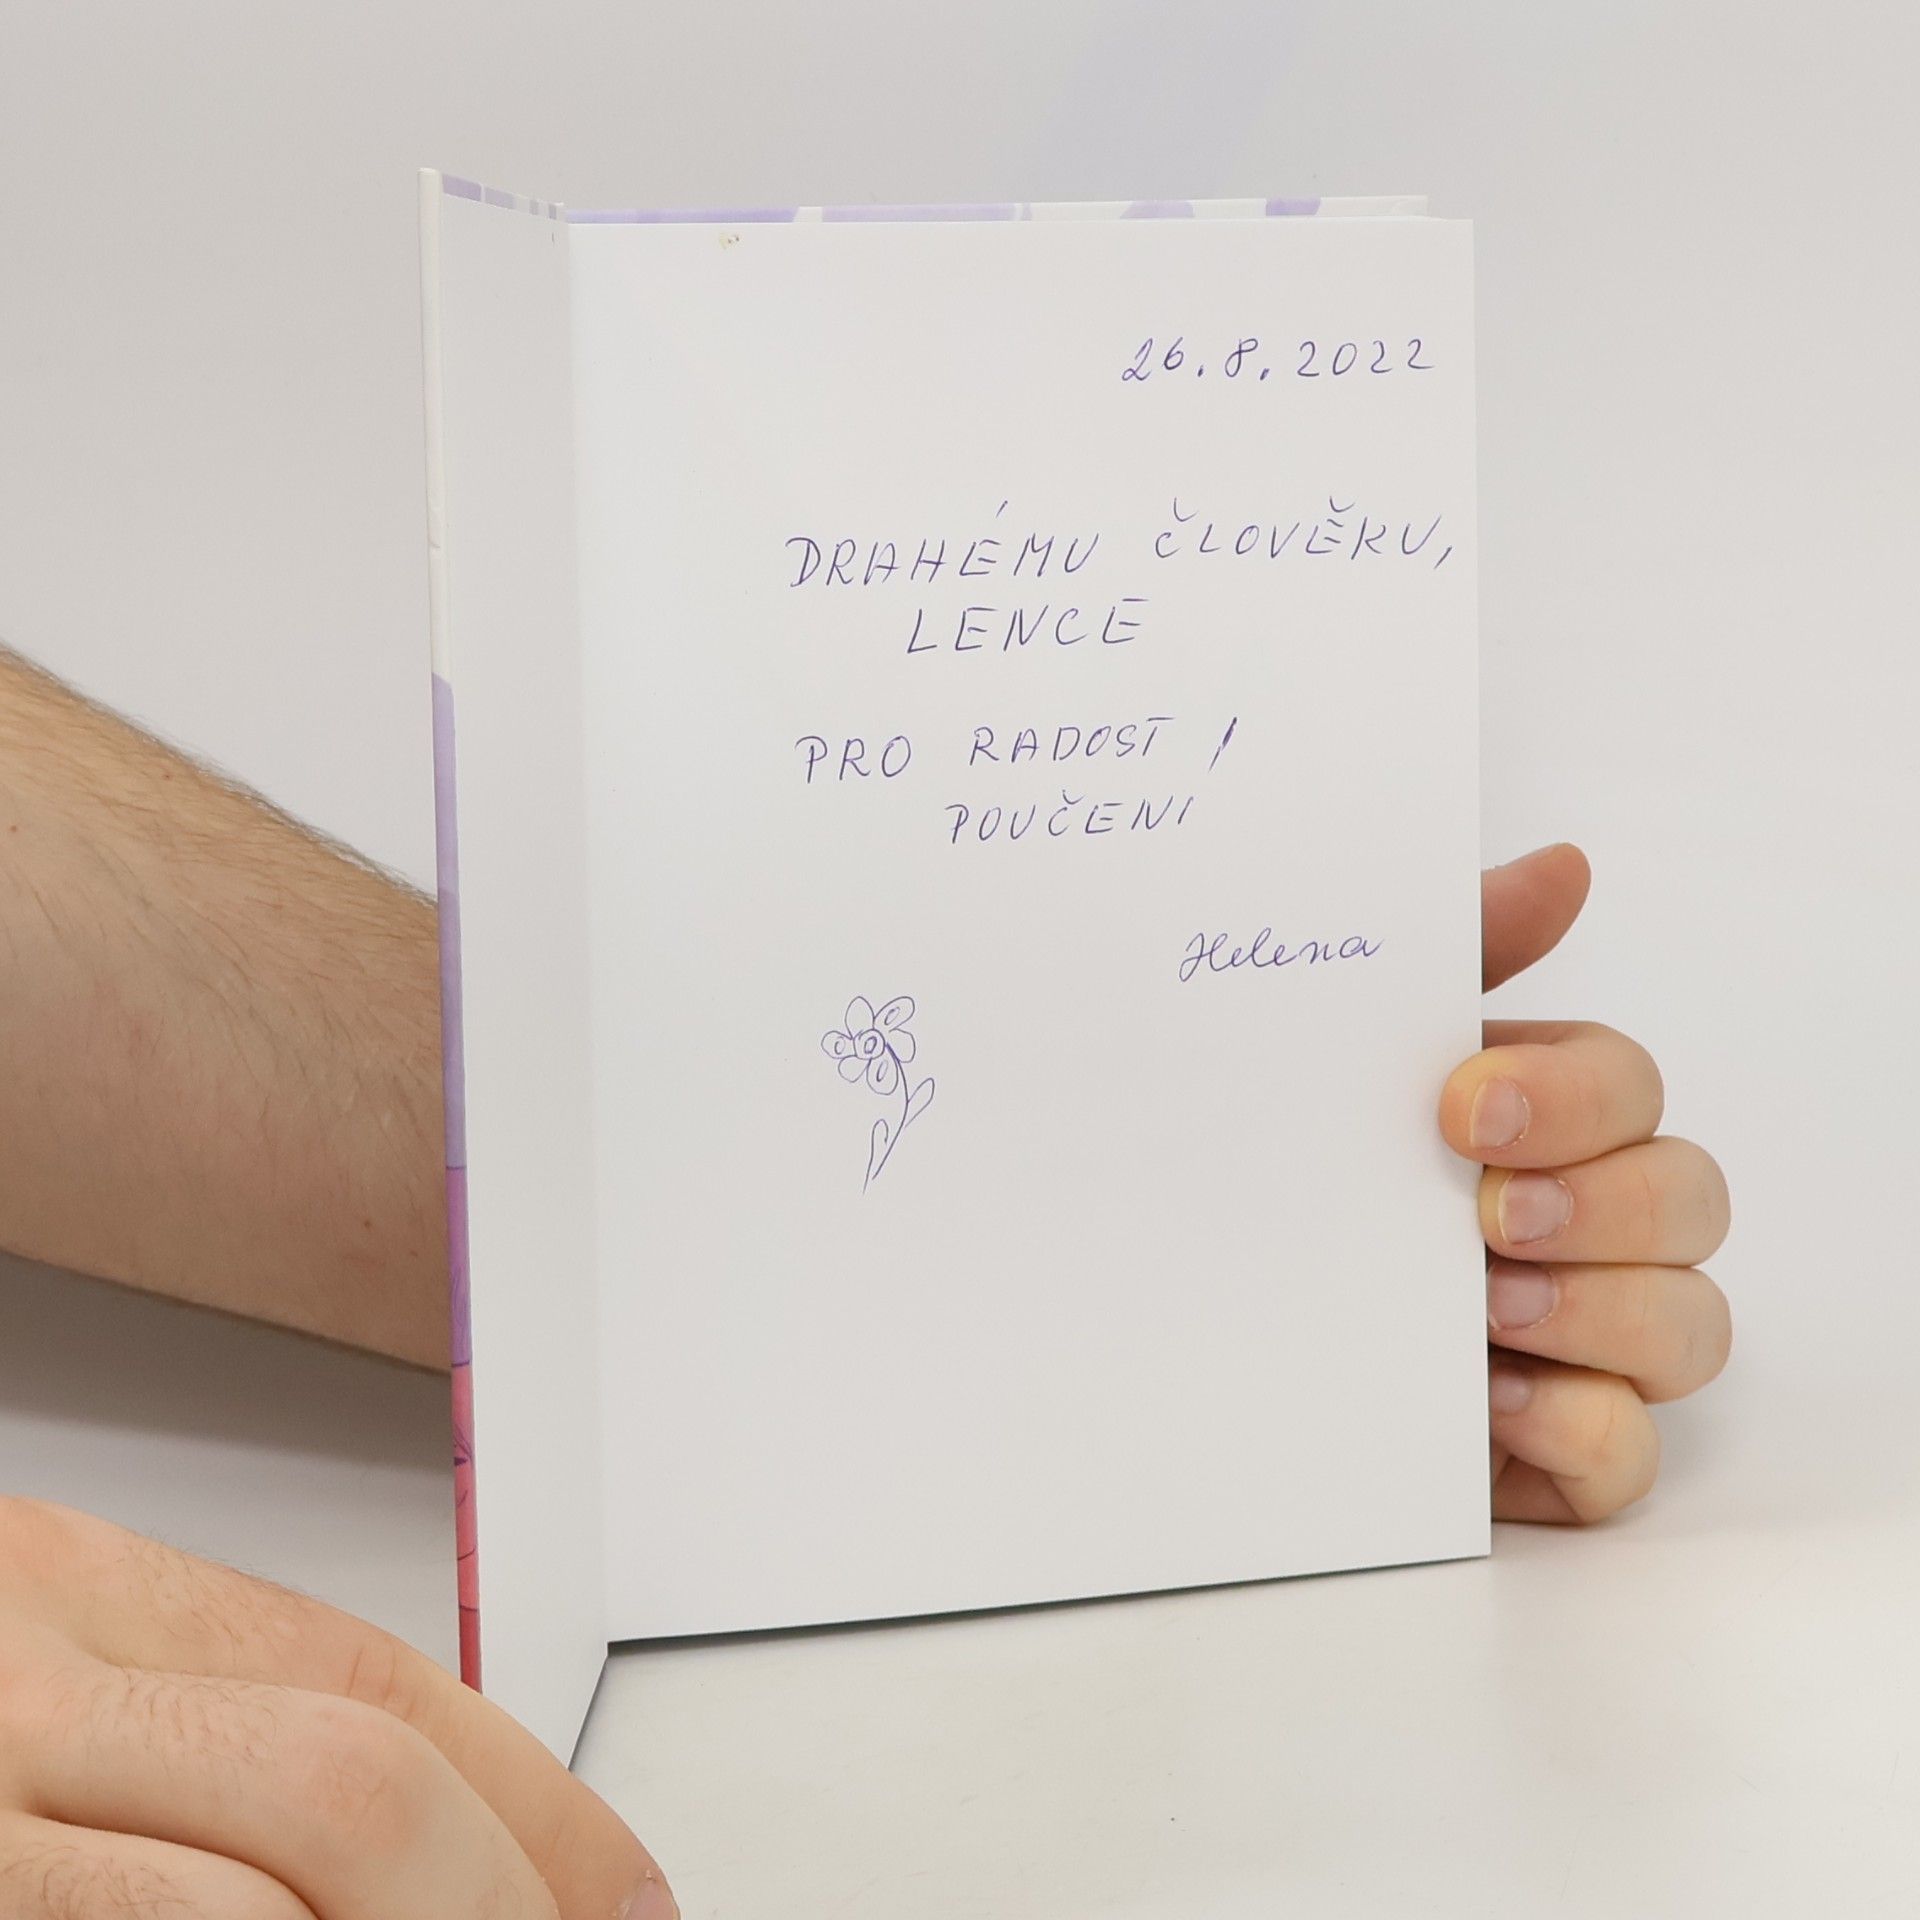 26.8.2022
DRAHÉMU ČLOVĚKU,
LENCE
PRO RADOST /
POUČENI
Helena